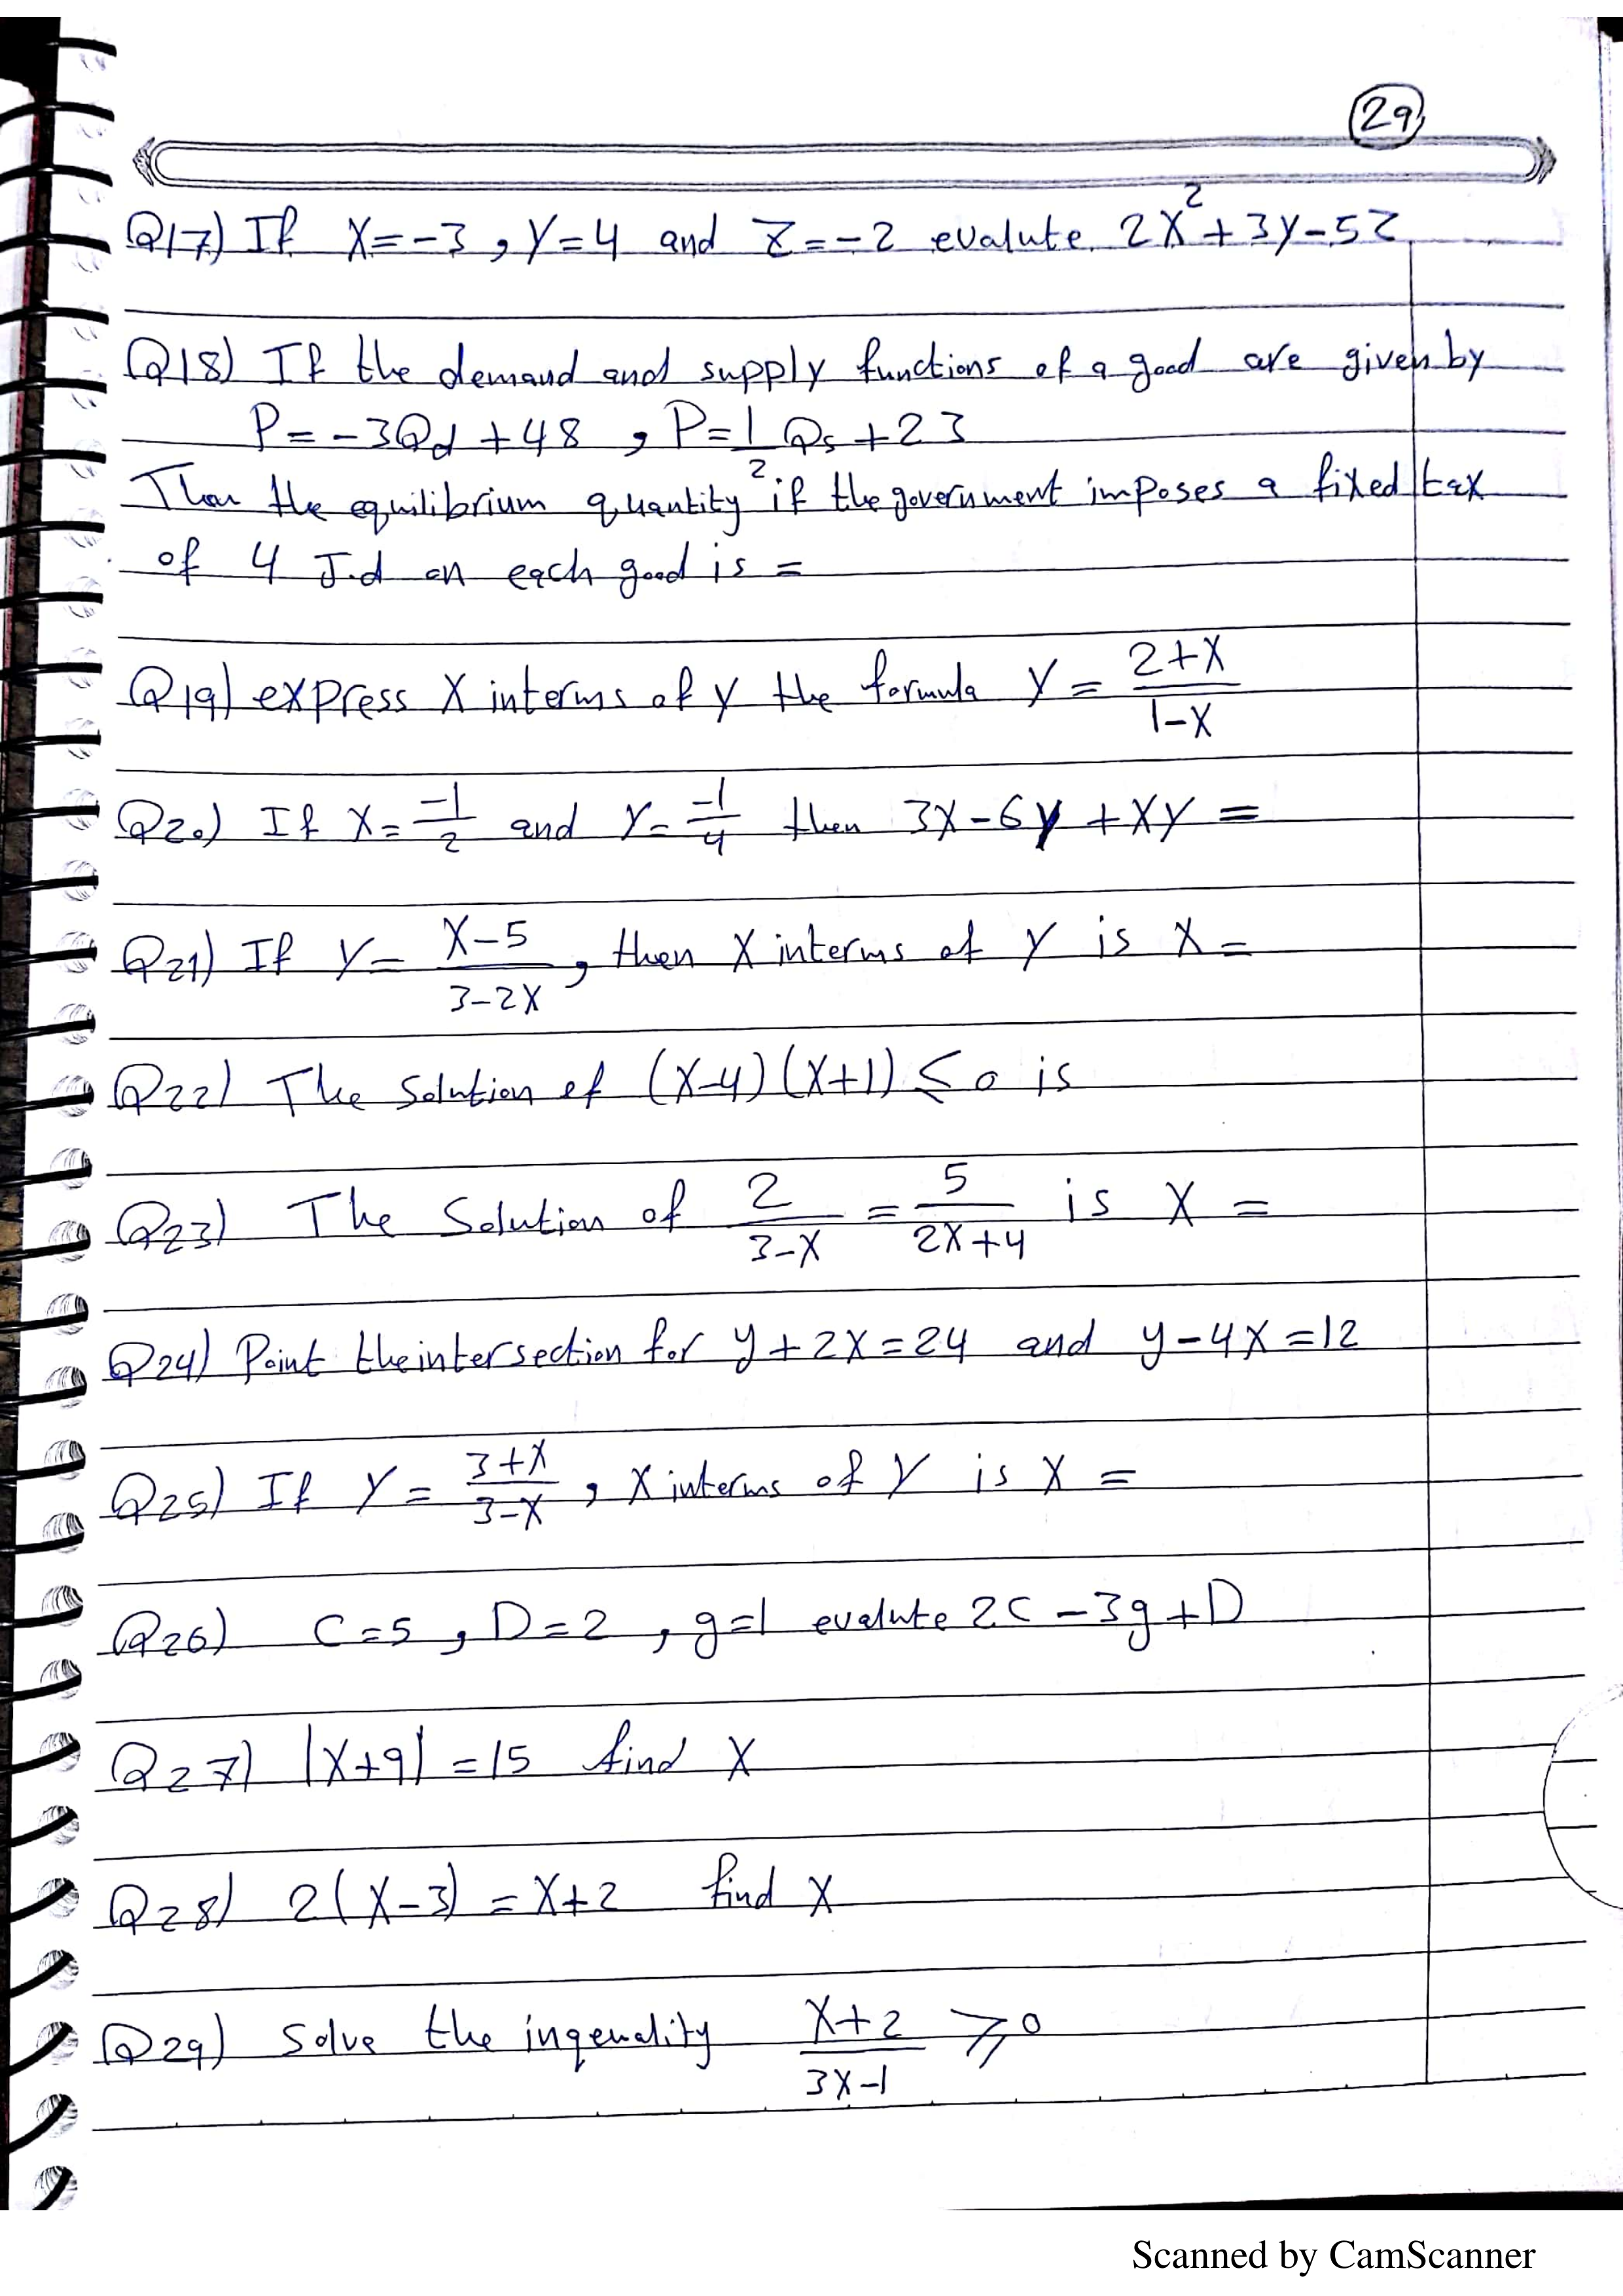 29
Q17) If X=-3, Y=4 and Z=-2 evalute 2X²+3y-5Z
Q18) If the demand and supply functions of a good are given by
P=-3Qd+48, P=1/2 Qs+23
Then the equilibrium quantity if the government imposes a fixed tax
of 4 J.d on each good is =
Q19) express X interms of y the formula Y = (2+X)/(1-X)
Q20) If X= -1/2 and Y= -1/4 then 3X-6y+XY =
Q21) If Y= (X-5)/(3-2X), then X interms of Y is X=
Q22) The Solution of (X-4)(X+1) ≤ 0 is
Q23) The Solution of 2/(3-X) = 5/(2X+4) is X =
Q24) Point the intersection for y+2X=24 and y-4X=12
Q25) If Y = (3+X)/(3-X), X interms of Y is X =
Q26) C=5, D=2, g=1 evalute 2C-3g+D
Q27) |X+9| =15 find X
Q28) 2(X-3) =X+2 find X
Q29) Solve the inqeuality (X+2)/(3X-1) ≥ 0
Scanned by CamScanner